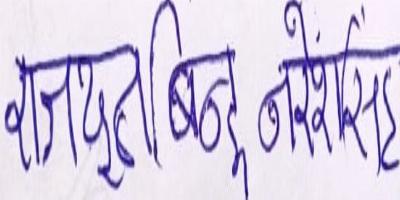 राजपूत बिन्दु नरेशसिंह